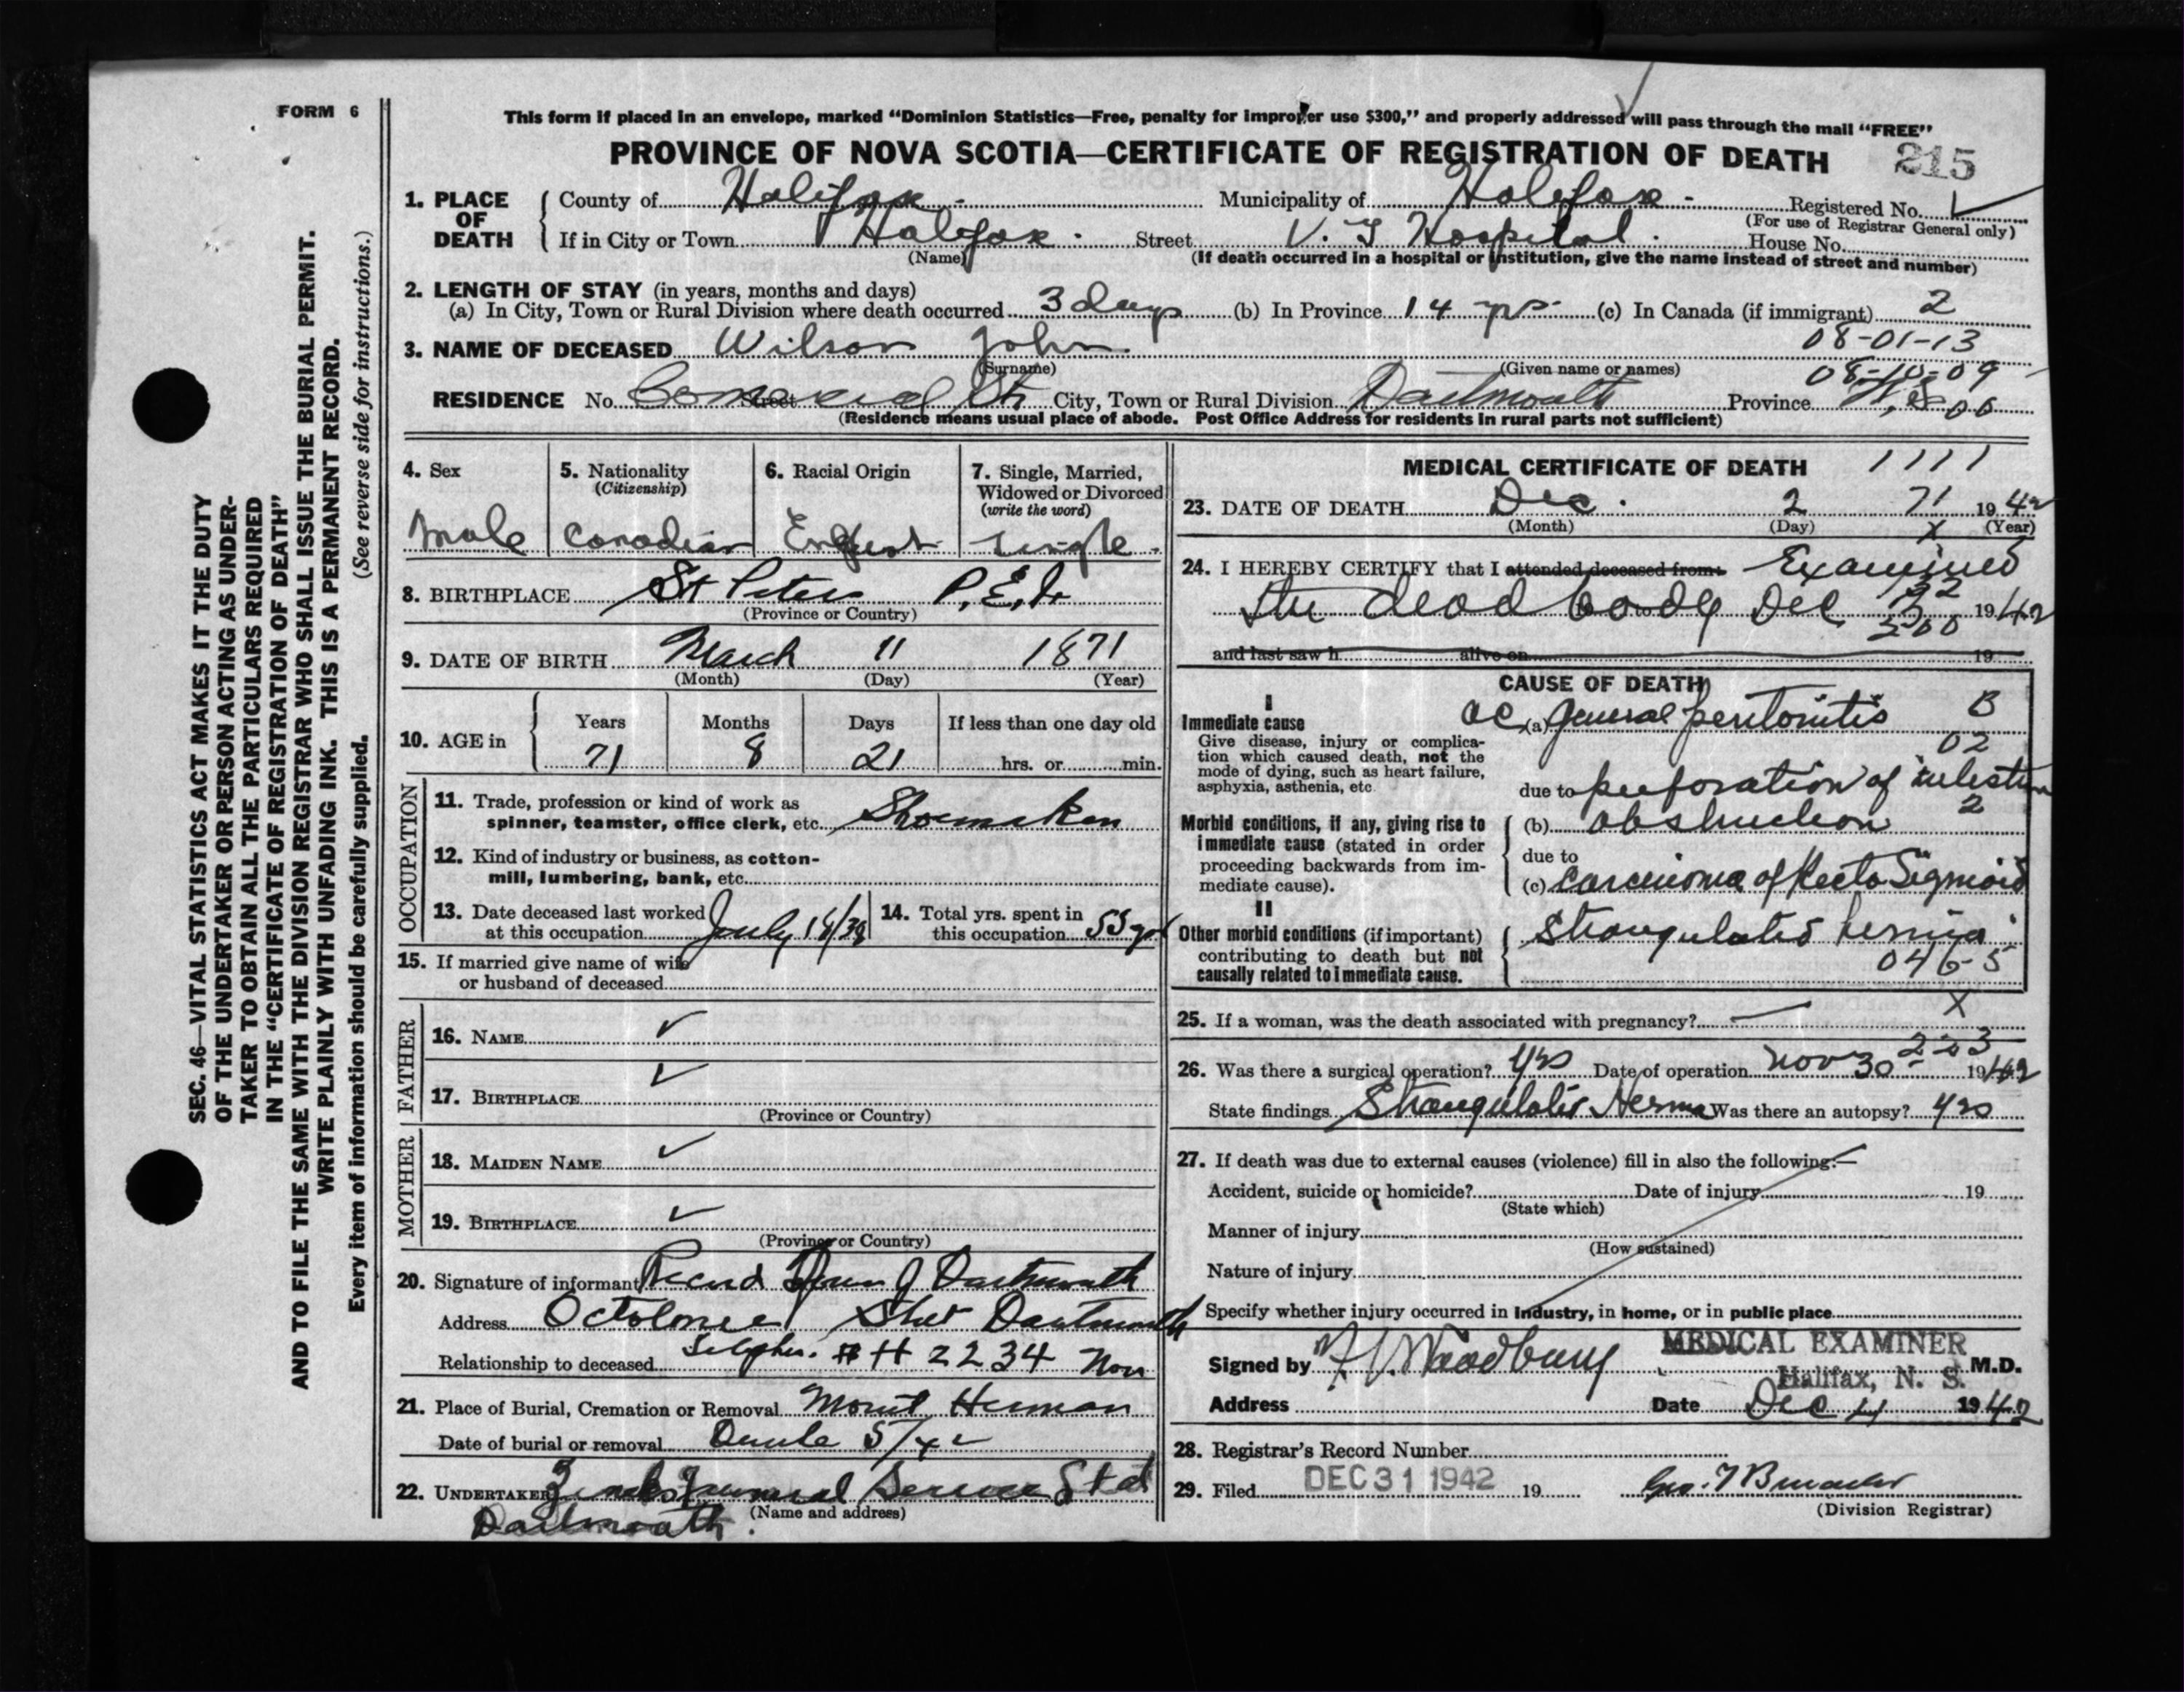 FORM 6
SEC. 46—VITAL STATISTICS ACT MAKES IT THE DUTY
OF THE UNDERTAKER OR PERSON ACTING AS UNDER-
TAKER TO OBTAIN ALL THE PARTICULARS REQUIRED
IN THE "CERTIFICATE OF REGISTRATION OF DEATH"
AND TO FILE THE SAME WITH THE DIVISION REGISTRAR WHO SHALL ISSUE THE BURIAL PERMIT.
WRITE PLAINLY WITH UNFADING INK. THIS IS A PERMANENT RECORD.
Every item of information should be carefully supplied. (See reverse side for instructions.)
This form if placed in an envelope, marked "Dominion Statistics—Free, penalty for improper use $300," and properly addressed will pass through the mail "FREE"
PROVINCE OF NOVA SCOTIA—CERTIFICATE OF REGISTRATION OF DEATH 215
1. PLACE OF DEATH County of Halifax Municipality of Halifax Registered No.
(For use of Registrar General only)
If in City or Town Halifax Street V. G Hospital House No.
(Name) (If death occurred in a hospital or institution, give the name instead of street and number)
2. LENGTH OF STAY (in years, months and days)
(a) In City, Town or Rural Division where death occurred 3 days (b) In Province 14 yrs (c) In Canada (if immigrant) 2
08-01-13
3. NAME OF DECEASED Wilson John
(Surname) (Given name or names) 08-10-09
RESIDENCE No. St. Street City, Town or Rural Division Dartmouth Province N.S 00
(Residence means usual place of abode. Post Office Address for residents in rural parts not sufficient)
4. Sex 5. Nationality (Citizenship) 6. Racial Origin 7. Single, Married, Widowed or Divorced (write the word)
Male Canadian English single
8. BIRTHPLACE St Peters P.E.I.
(Province or Country)
9. DATE OF BIRTH March 11 1871
(Month) (Day) (Year)
10. AGE in Years Months Days If less than one day old
71 8 21 hrs. or min.
OCCUPATION
11. Trade, profession or kind of work as
spinner, teamster, office clerk, etc. Shoemaker
12. Kind of industry or business, as cotton-
mill, lumbering, bank, etc.
13. Date deceased last worked
at this occupation July 14. Total yrs. spent in
this occupation 55 yrs
15. If married give name of wife
or husband of deceased
FATHER
16. NAME
17. BIRTHPLACE
(Province or Country)
MOTHER
18. MAIDEN NAME
19. BIRTHPLACE
(Province or Country)
20. Signature of informant Record Town of Dartmouth
Address Dartmouth
Relationship to deceased # 2234 Non
21. Place of Burial, Cremation or Removal Mount Herman
Date of burial or removal 5/42
22. UNDERTAKER Funeral Service Ltd
Dartmouth. (Name and address)
MEDICAL CERTIFICATE OF DEATH 1111
23. DATE OF DEATH Dec. 2 71 1942
(Month) (Day) X (Year)
24. I HEREBY CERTIFY that I attended deceased from: Examined
the dead body Dec 1942
200
and last saw h alive on 19
CAUSE OF DEATH
I
Immediate cause
Give disease, injury or complica-
tion which caused death, not the
mode of dying, such as heart failure,
asphyxia, asthenia, etc
(a) ac general peritonitis B
02
due to perforation of intestine
2
Morbid conditions, if any, giving rise to
immediate cause (stated in order
proceeding backwards from im-
mediate cause).
(b) obstruction
due to
(c) carcinoma of Recto Sigmoid
II
Other morbid conditions (if important)
contributing to death but not
causally related to immediate cause.
Strangulated hernia
046-5
25. If a woman, was the death associated with pregnancy? — X
223
26. Was there a surgical operation? yes Date of operation Nov 30 1942
State findings Strangulated Hernia Was there an autopsy? yes
27. If death was due to external causes (violence) fill in also the following:—
Accident, suicide or homicide? Date of injury 19
(State which)
Manner of injury
(How sustained)
Nature of injury
Specify whether injury occurred in industry, in home, or in public place
MEDICAL EXAMINER
Signed by Woodbury M.D.
Halifax, N. S.
Address Date Dec 4 1942
28. Registrar's Record Number
29. Filed DEC 31 1942 19
(Division Registrar)